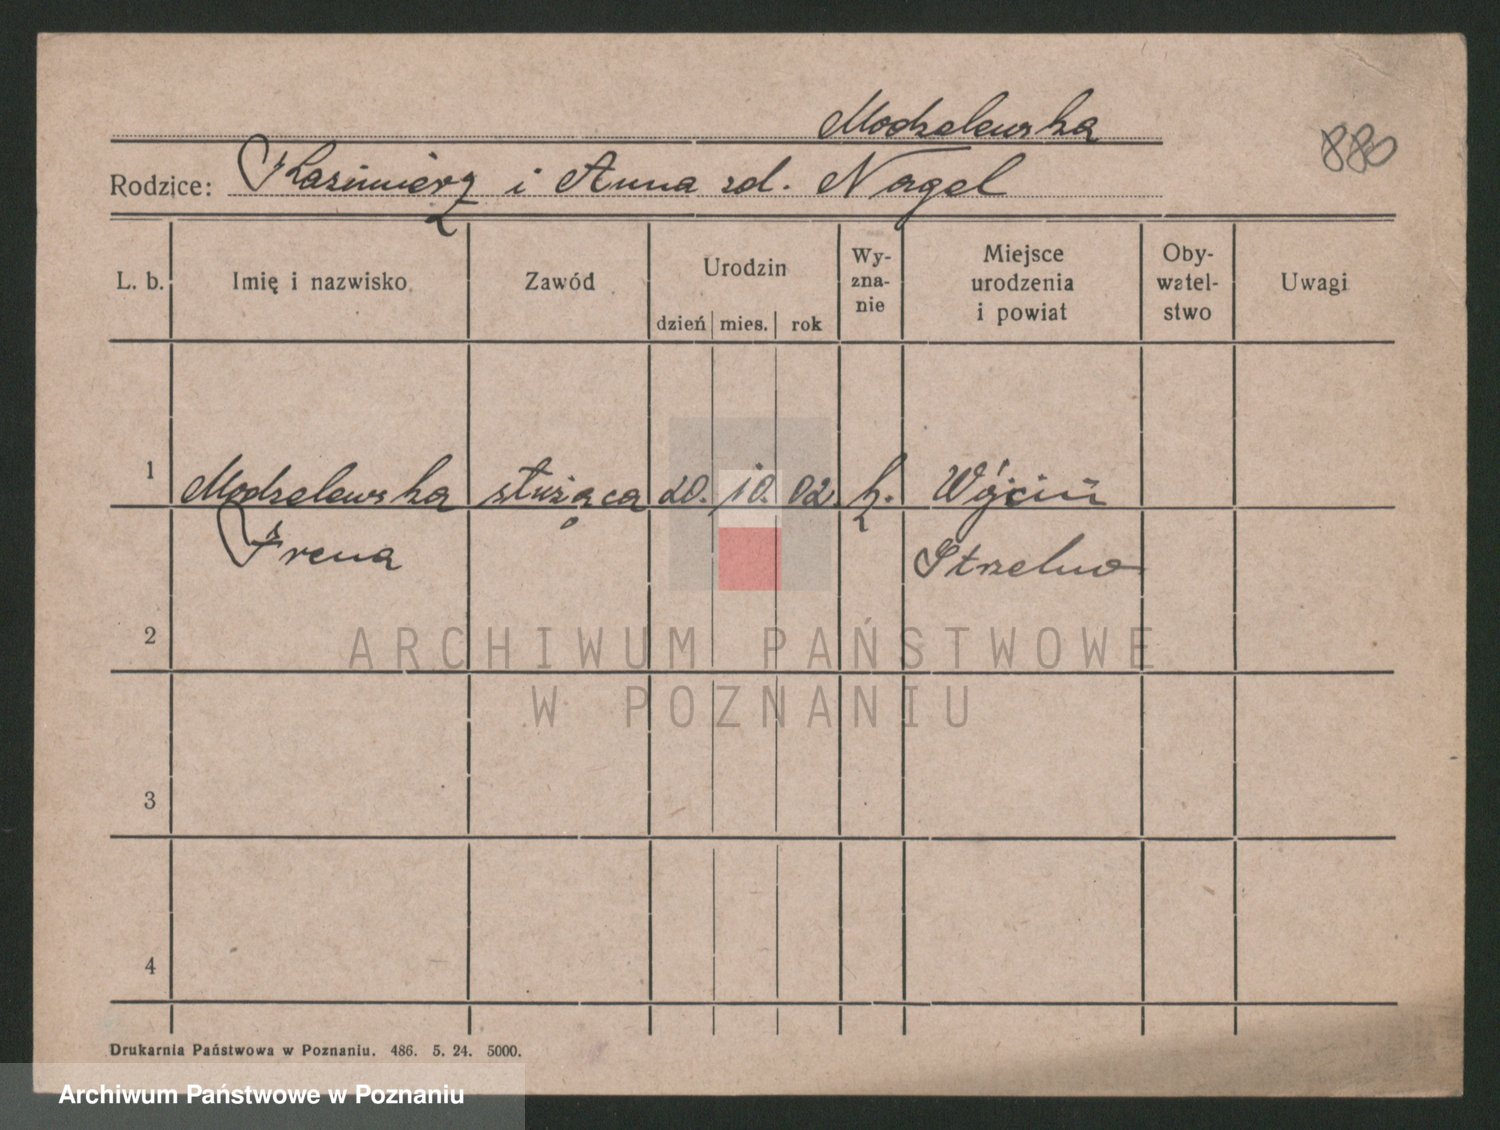 Modzelewska
880
Rodzice: Kazimierz i Anna zd. Nagel
L. b. Imię i nazwisko Zawód Urodzin dzień mies. rok Wy-zna-nie Miejsce urodzenia i powiat Oby-watel-stwo Uwagi
1 Modzelewska służąca 20. 10. 02. k. Wójcin
Irena Strzelno
2
ARCHIWUM PAŃSTWOWE
W POZNANIU
3
4
Drukarnia Państwowa w Poznaniu. 486. 5. 24. 5000.
Archiwum Państwowe w Poznaniu